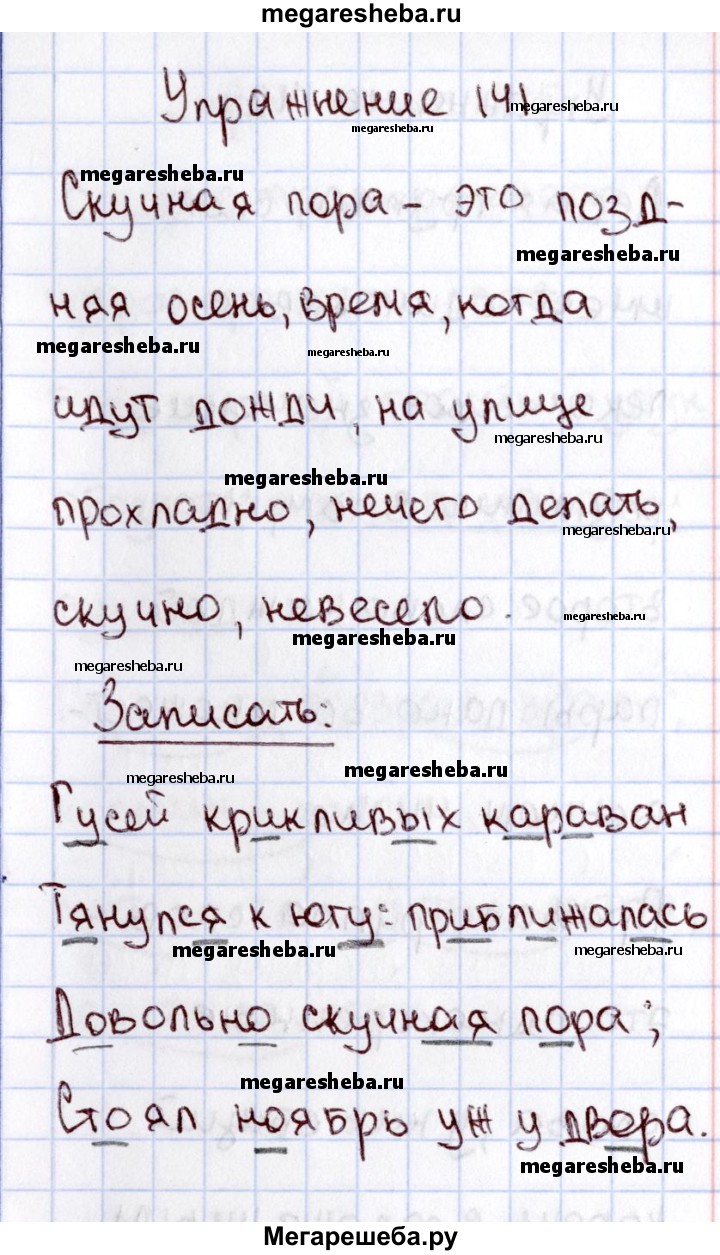 megaresheba.ru
Упражнение 141
megaresheba.ru
megaresheba.ru
megaresheba.ru
Скучная пора – это позд-
megaresheba.ru
няя осень, время, когда
megaresheba.ru
megaresheba.ru
идут дожди, на улице
megaresheba.ru
megaresheba.ru
прохладно, нечего делать,
megaresheba.ru
скучно, невесело.
megaresheba.ru
megaresheba.ru
megaresheba.ru
Записать:
megaresheba.ru
megaresheba.ru
Гусей крикливых караван
Тянулся к югу: приближалась
megaresheba.ru
megaresheba.ru
Довольно скучная пора;
megaresheba.ru
Стоял ноябрь уж у двора.
megaresheba.ru
Мегарешеба.ру